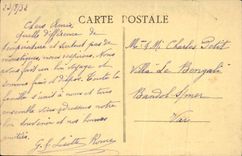 22/9/32
CARTE POSTALE
Chers Amis
Quelle différence de
température et surtout pas de
moustiques, nous respirons. Nous
avons fait un bon voyage et
sommes frais et dispos. Toute la
famille s'unit à nous et tous
ensemble vous adressons notre
bon souvenir et nos bonnes
amitiés.
Mr & Mme Charles Petit
Villa "Le Bengali"
Bandol s/mer
Var